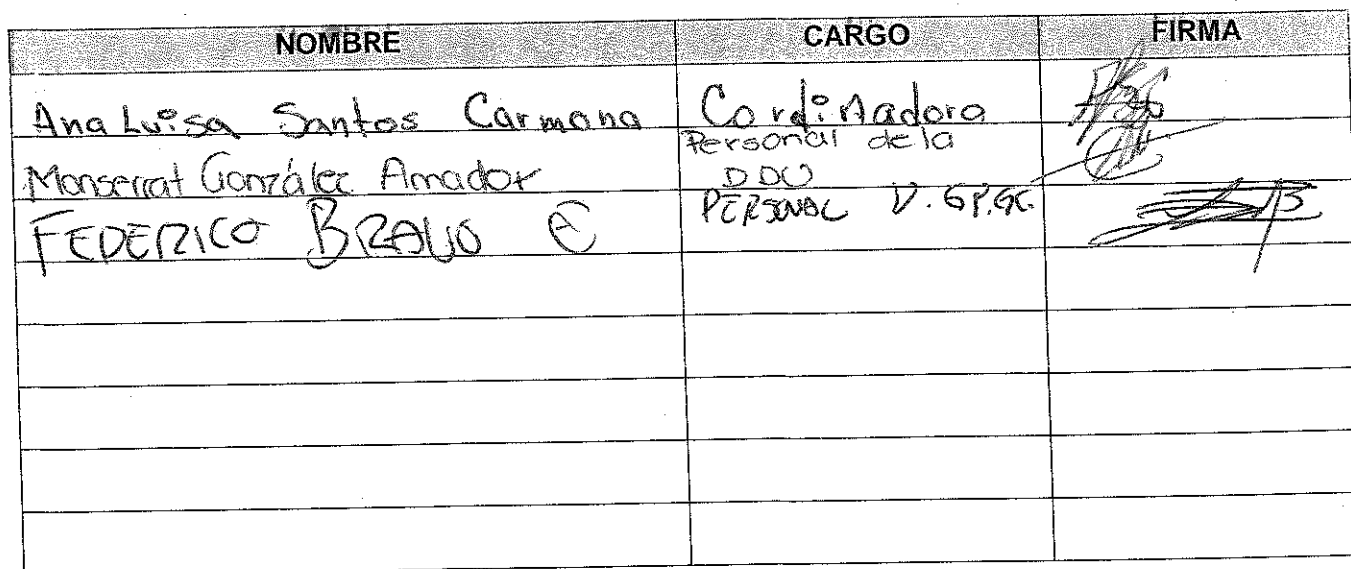 NOMBRE CARGO FIRMA
Ana Luisa Santos Carmona Cordinadora
Monserrat González Amador Personal de la
DDU
FEDERICO BRAVO E PERSONAL